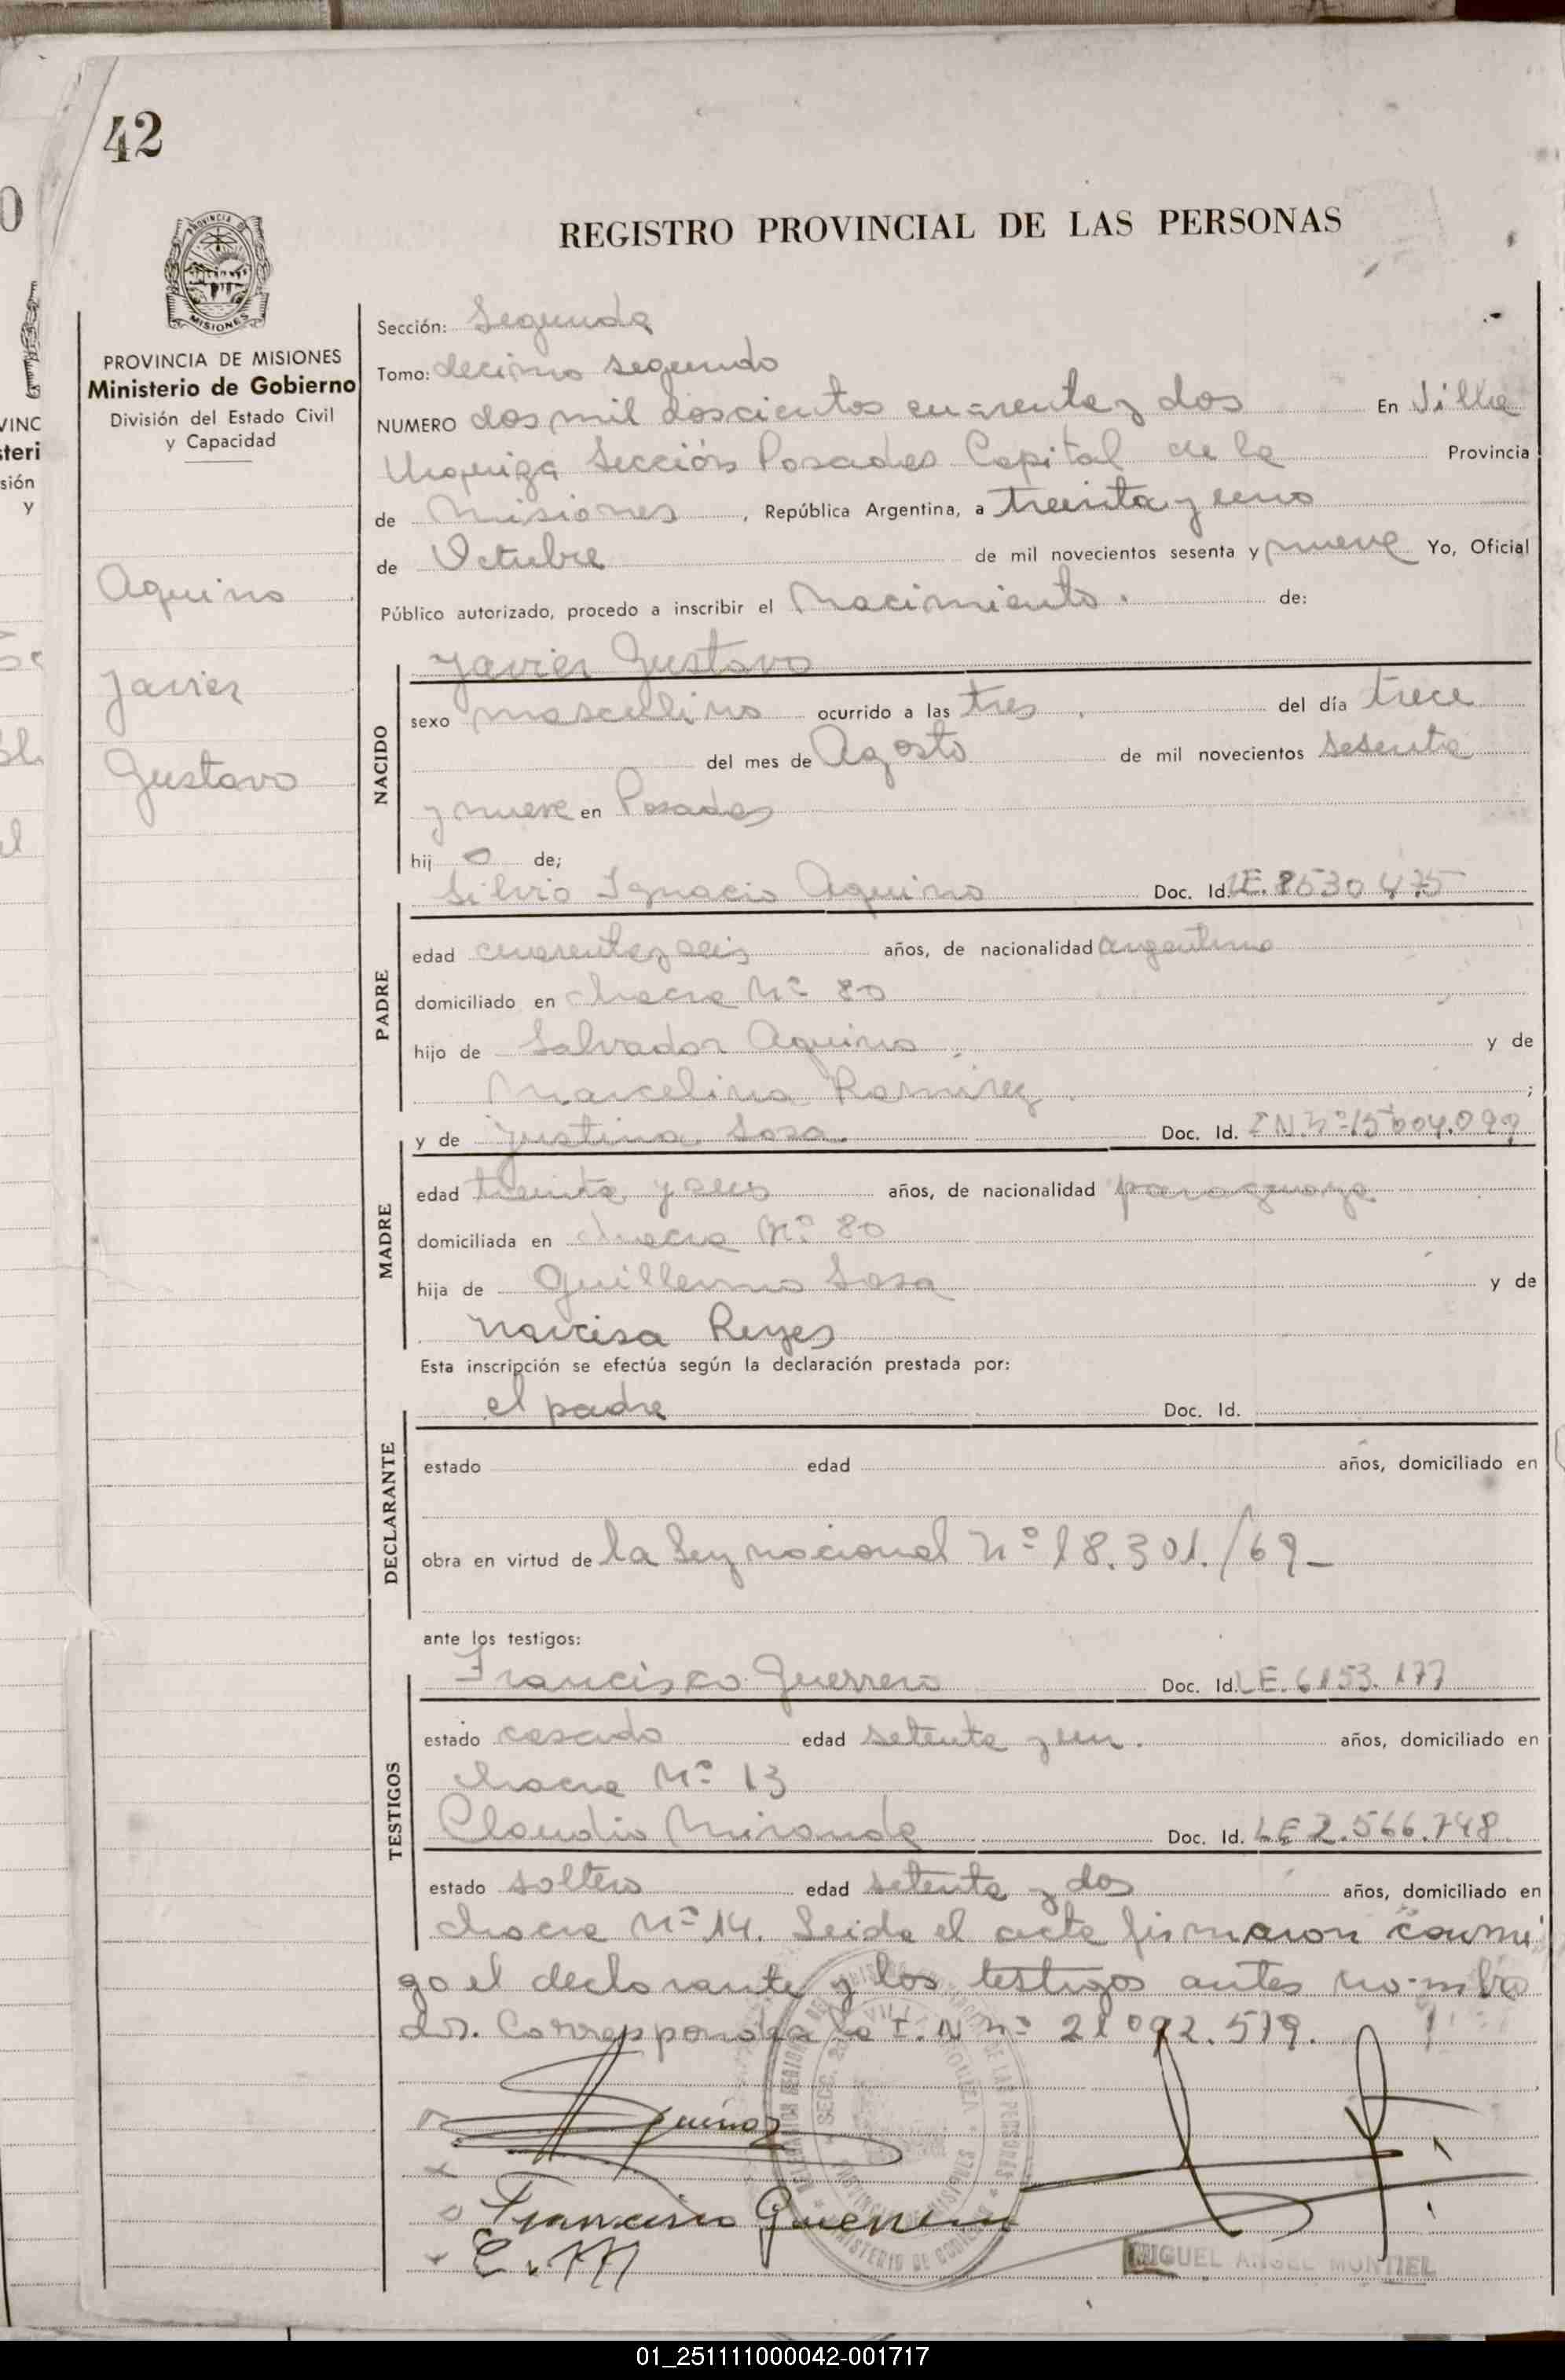 42
REGISTRO PROVINCIAL DE LAS PERSONAS
PROVINCIA DE MISIONES
Ministerio de Gobierno
División del Estado Civil
y Capacidad
Aquino
Javier
Gustavo
Sección: Segunda
Tomo: decimo segundo
NUMERO dos mil doscientos cuarenta y dos En Villa
Urquiza Sección Posadas Capital de la Provincia
de Misiones, República Argentina, a treinta y uno
de Octubre de mil novecientos sesenta y nueve Yo, Oficial
Público autorizado, procedo a inscribir el Nacimiento. de:
NACIDO
Javier Gustavo
sexo masculino ocurrido a las tres. del día trece
del mes de Agosto de mil novecientos sesenta
y nueve en Posadas
hijo de;
PADRE
Silvio Ignacio Aquino Doc. Id. LE. 8530475
edad cuarenta y seis años, de nacionalidad argentino
domiciliado en chacra Nº 80
hijo de Salvador Aquino, y de
Marcelina Ramirez.;
MADRE
y de Justina Sosa. Doc. Id.
edad treinta y seis años, de nacionalidad paraguaya
domiciliada en chacra Nº 80
hija de Guillermo Sosa y de
Narcisa Reyes
Esta inscripción se efectúa según la declaración prestada por:
DECLARANTE
el padre Doc. Id.
estado edad años, domiciliado en
obra en virtud de la Ley nacional Nº 18.301./69-
ante los testigos:
TESTIGOS
Francisco Guerrero Doc. Id. LE. 6153.177
estado casado edad setenta y un. años, domiciliado en
chacra Nº 13
Claudio Miranda Doc. Id. LE 2.566.748
estado soltero edad setenta y dos años, domiciliado en
chacra Nº 14. Leida el acta firmaron conmi
go el declarante y los testigos antes nombra
dos. Corresponde la I. N Nº 21092.519.
Francisco Guerrero
C. M
MIGUEL ANGEL MONTIEL
01_251111000042-001717